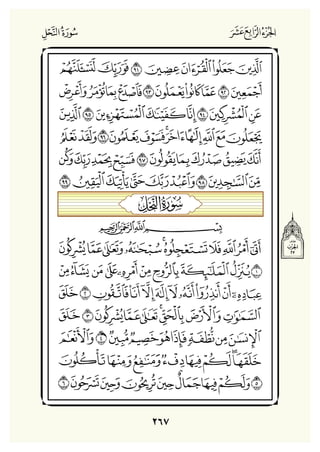 الجُزْءُ الرَّابِعَ عَشَرَ سُورَةُ النَّحْلِ
ٱلَّذِينَ جَعَلُوا۟ ٱلْقُرْءَانَ عِضِينَ ٩١ فَوَرَبِّكَ لَنَسْـَٔلَنَّهُمْ
أَجْمَعِينَ ٩٢ عَمَّا كَانُوا۟ يَعْمَلُونَ ٩٣ فَٱصْدَعْ بِمَا تُؤْمَرُ وَأَعْرِضْ
عَنِ ٱلْمُشْرِكِينَ ٩٤ إِنَّا كَفَيْنَـٰكَ ٱلْمُسْتَهْزِءِينَ ٩٥ ٱلَّذِينَ
يَجْعَلُونَ مَعَ ٱللَّهِ إِلَـٰهًا ءَاخَرَ فَسَوْفَ يَعْلَمُونَ ٩٦ وَلَقَدْ نَعْلَمُ
أَنَّكَ يَضِيقُ صَدْرُكَ بِمَا يَقُولُونَ ٩٧ فَسَبِّحْ بِحَمْدِ رَبِّكَ وَكُن
مِّنَ ٱلسَّـٰجِدِينَ ٩٨ وَٱعْبُدْ رَبَّكَ حَتَّىٰ يَأْتِيَكَ ٱلْيَقِينُ ٩٩
سُورَةُ النَّحْلِ
بِسْمِ ٱللَّهِ ٱلرَّحْمَـٰنِ ٱلرَّحِيمِ
أَتَىٰٓ أَمْرُ ٱللَّهِ فَلَا تَسْتَعْجِلُوهُ سُبْحَـٰنَهُۥ وَتَعَـٰلَىٰ عَمَّا يُشْرِكُونَ
١ يُنَزِّلُ ٱلْمَلَـٰٓئِكَةَ بِٱلرُّوحِ مِنْ أَمْرِهِۦ عَلَىٰ مَن يَشَآءُ مِنْ
عِبَادِهِۦٓ أَنْ أَنذِرُوٓا۟ أَنَّهُۥ لَآ إِلَـٰهَ إِلَّآ أَنَا۠ فَٱتَّقُونِ ٢ خَلَقَ
ٱلسَّمَـٰوَٰتِ وَٱلْأَرْضَ بِٱلْحَقِّ تَعَـٰلَىٰ عَمَّا يُشْرِكُونَ ٣ خَلَقَ
ٱلْإِنسَـٰنَ مِن نُّطْفَةٍ فَإِذَا هُوَ خَصِيمٌ مُّبِينٌ ٤ وَٱلْأَنْعَـٰمَ
خَلَقَهَا لَكُمْ فِيهَا دِفْءٌ وَمَنَـٰفِعُ وَمِنْهَا تَأْكُلُونَ
٥ وَلَكُمْ فِيهَا جَمَالٌ حِينَ تُرِيحُونَ وَحِينَ تَسْرَحُونَ ٦
٢٦٧